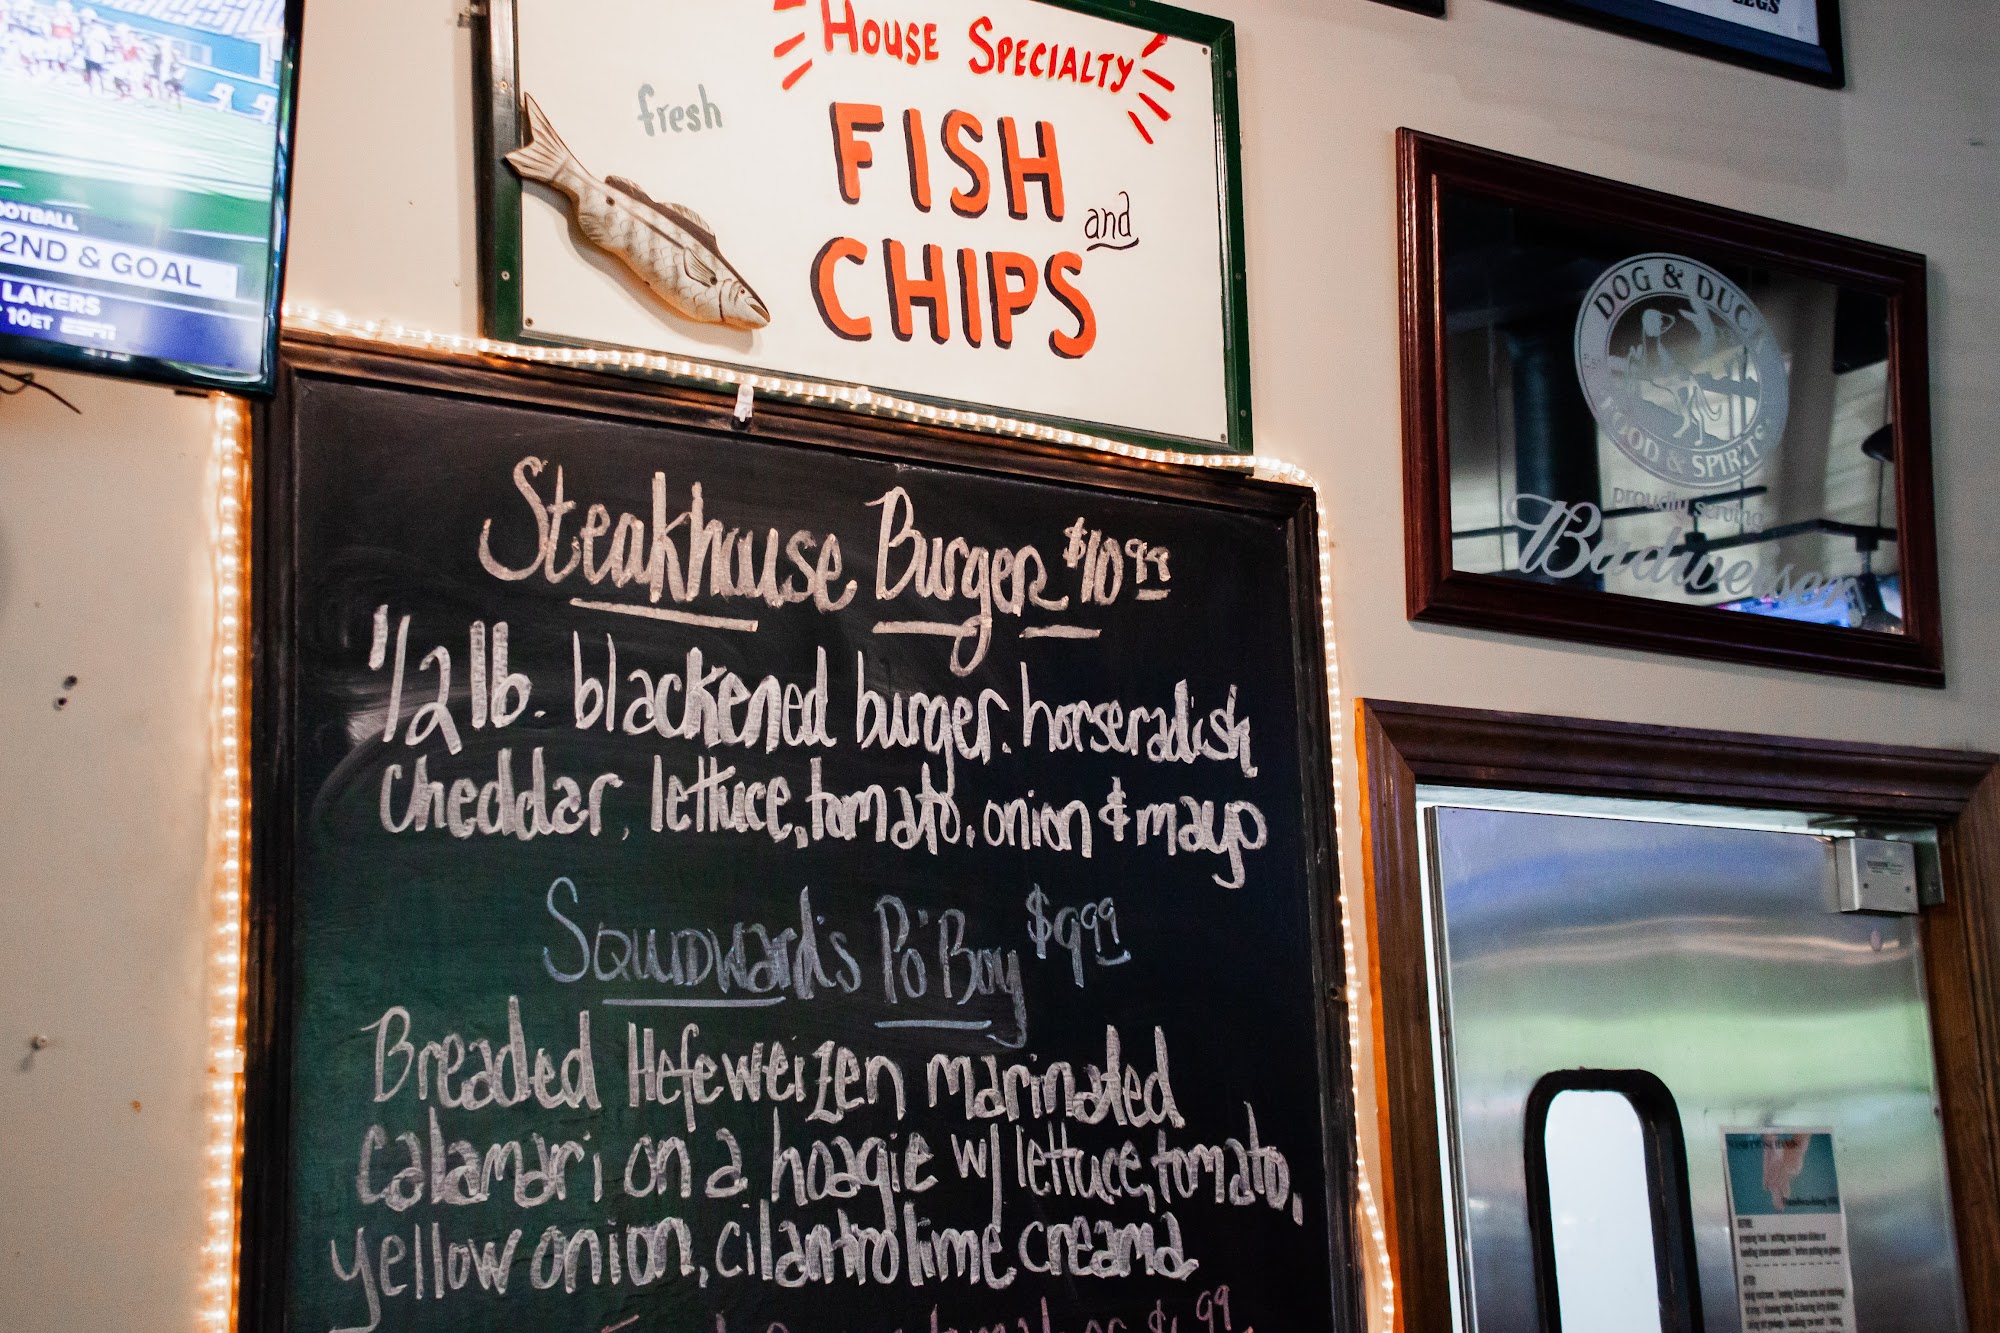 OOTBALL
2ND & GOAL
LAKERS
10ET ESPN
House Specialty
fresh
FISH
and
CHIPS
EGGS
DOG & DUCK
FOOD & SPIRITS
proudly serving
Budweiser
Steakhouse Burger $10.99
1/2 lb. blackened burger. horseradish
cheddar, lettuce, tomato, onion & mayo
Squidward's Po'Boy $9.99
Breaded Hefeweizen marinated
calamari on a hoagie w/ lettuce, tomato,
yellow onion, cilantro lime crema
BEFORE
AFTER